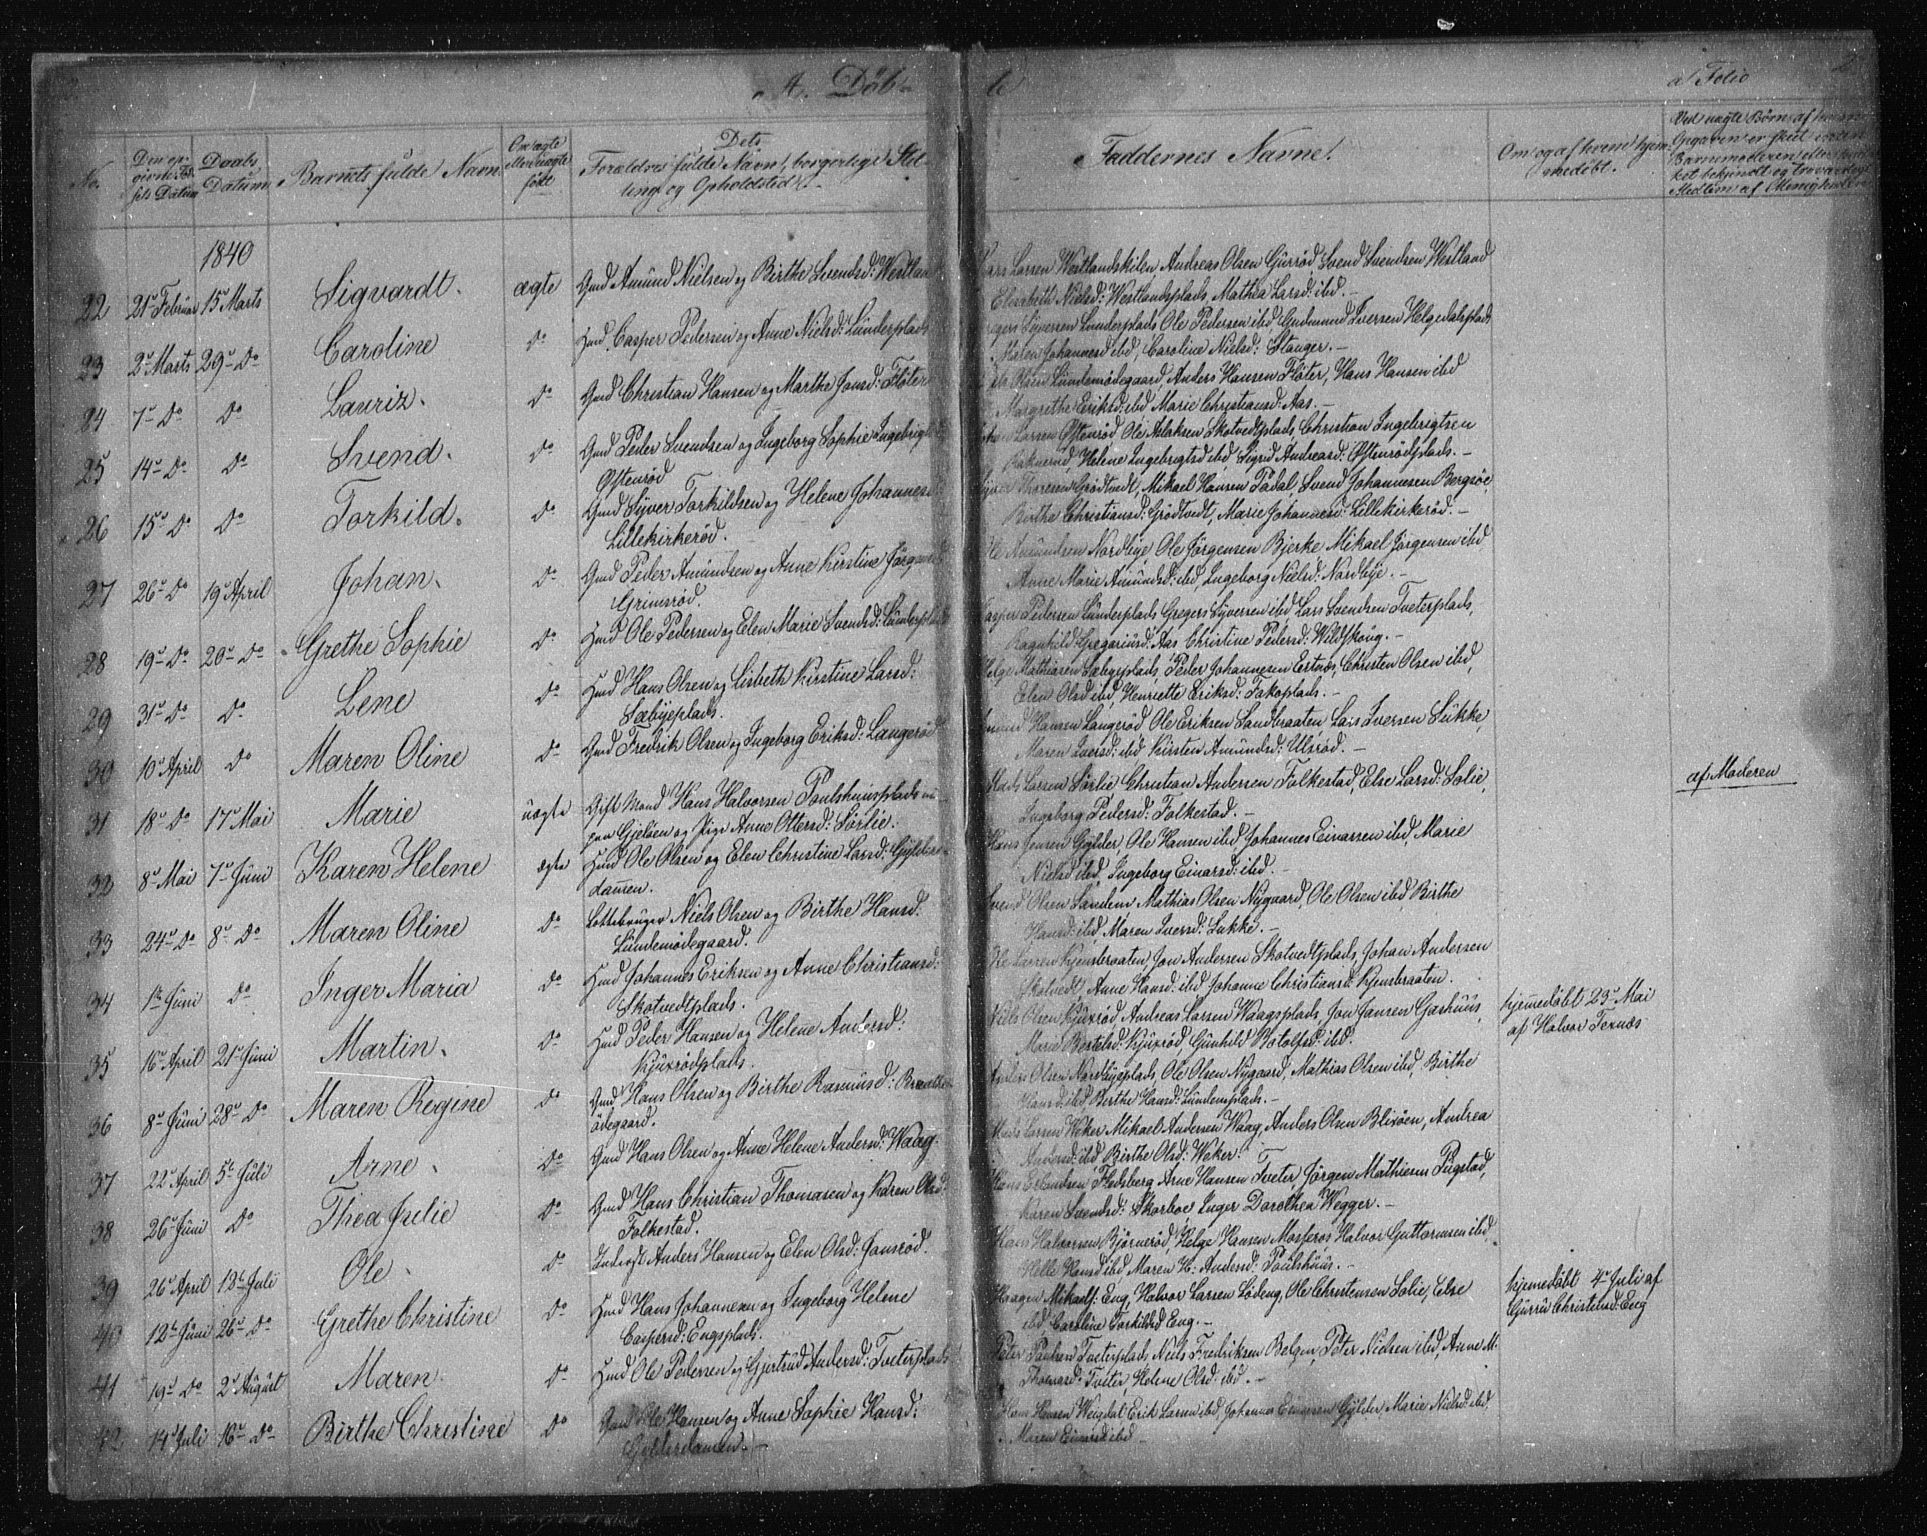 A. Döbte
a/ Folio 2
No.
Den opgivne Fødsels Datum
Daabs Datum
Barnets fulde Navn
Om ægte eller uægte født
Dets Forældres fulde Navn, borgerlige Stilling og Opholdsted
Faddernes Navne.
Om og af hvem hjemmedøbt.
1840
22 21 Februar 15 Marts Sigvardt. ægte Gmd Amund Nielsen og Birthe Svendsd: Westland
Lars Larsen Westlandskilen, Andreas Olsen Gurrød Svend Svendsen Westland
Elisabeth Nielsd: Westlandsplads, Mathea Larsd: ibd. -
23 2 Marts 29 Do Caroline Do Hmd Casper Pedersen og Anne Nielsd: Lunderplads
Gregers Syversen Lunderplads Ole Pedersen ibd Gudmund Iversen Helgedalsplads
Maren Johannesd ibd, Caroline Nielsd: Stanger. -
24 7 Do Do Lauriz. Do Gmd Christian Hansen og Marthe Jansd: Fløter
Olsen Lundemødegaard, Anders Hansen Fløter, Hans Hansen ibd
Margrethe Eriksd: ibd Marie Christiansd: Aas. -
25 14 Do Do Svend. Do Gmd Peder Svendsen og Ingeborg Sophie Ingebrigtsd
Østenrød
Larsen Østenrød, Ole Aslaksen Skotvedtplads Christian Ingebrigtsen
Raknerud, Helene Ingebrigtsd ibd Sigrid Andreasd: Østenrødplads. -
26 15 Do Do Torkild. Do Gmd Syver Torkildsen og Helene Johannesd
Lillekirkerød.
Thoresen Grødtvedt, Mikael Hansen Pådal Svend Johannesen Bergsøe,
Birthe Christiansd: Grødtvedt, Marie Johannesd: Lillekirkerød. -
27 26 Do 19 April Johan. Do Gmd Peder Amundsen og Anne Kirstine Jørgensd
Grimsrød.
Ole Amundsen Nordbye Ole Jørgensen Bjerke Mikael Jørgensen ibd
Anne Marie Amundsd: ibd, Ingeborg Nielsd: Nordbye. -
28 19 Do 20 Do Grethe Sophie Do Hmd Ole Pedersen og Elen Marie Svendsd: Lunderplads
Casper Pedersen Lunderplads Gregers Syversen ibd Lars Svendsen Tveterplads,
Ragnhild Gregariusd: Aas Christine Pedersd: Wildskoug. -
29 31 Do Do Lene Do Hmd Hans Olsen og Lisbeth Kirstine Larsd:
Sæbyeplads.
Helge Mathiasen Sæbyeplads, Peder Johannesen Ertnæs, Christen Olsen ibd,
Elen Olsd ibd, Henriette Eriksd: Takoplads. -
30 10 April Do Maren Oline Do Gmd Fredrik Olsen og Ingeborg Eriksd: Langerød
Amund Hansen Langerød Ole Eriksen Sandbraaten Lars Iversen Sukke,
Maren Iversd: ibd Kirsten Amundsd: Ulsrød. -
31 18 Do 17 Mai Marie uægte Gift Mand Hans Halvorsen Poulshuusplads
paa Gjeløen og Pige Anne Ottersd: Sørlie.
Mads Larsen Sørlie Christian Andersen Folkestad, Else Larsd: Solie,
Ingeborg Pedersd: Folkestad. -
af Moderen
32 8 Mai 7 Juni Karen Helene ægte Hmd Ole Olsen og Elen Christine Larsd: Gylderdamen.
Hans Jensen Gylder, Ole Hansen ibd Johannes Einarsen ibd, Marie
Nielsd ibd, Ingeborg Einarsd: ibd. -
33 24 Do 8 Do Maren Oline Do Lottebruger Niels Olsen og Birthe Hansd:
Lundemødegaard.
Svend Olsen Sandem Mathias Olsen Nygaard, Ole Olsen ibd Birthe
Hansd: ibd, Maren Iversd: Sukke. -
34 1 Juni Do Inger Maria Do Hmd Johannes Eriksen og Anne Christiansd:
Skotvedtplads.
Ole Larsen Kjensbraaten, Jon Andersen Skotvedtplads, Johan Andersen
Skotvedt Anne Hansd: ibd Johanne Christiansd: Kjensbraaten.
35 16 April 21 Juni Martin. Do Hmd Peder Hansen og Helene Andersd:
Kjuxrødplads.
Niels Olsen Kjuxrød, Andreas Larsen Waagsplads, Jon Jansen Gashuus,
Marie Bertelsd: Kjuxrød Gunhild Botolfsd: ibd.
hjemmedøbt 23 Mai
af Halvor Texnæs
36 8 Juni 28 Do Maren Regine Do Gmd Hans Olsen og Birthe Rasmusd:
ødegaard.
Anders Olsen Nordbyeplads, Ole Olsen Nygaard, Mathias Olsen ibd, Birthe
Hansd: ibd Birthe Hansd: Lundemplads. -
37 22 April 5 Juli Arne. Do Gmd Hans Olsen og Anne Helene Andersd: Waag.
Mads Larsen Weker Mikael Andersen Waag, Anders Olsen Blixøen, Andrea
ibd Birthe Olsd: Weker.
38 26 Juni Do Thea Julie Do Gmd Hans Christian Thomasen og Karen Olsd
Folkestad.
Hans Erlandsen Fledsberg Arne Hansen Tveter, Jørgen Mathiesen Pugstad,
Karen Svendsd: Skorboe Inger Dorothea Wegger. -
39 26 April 12 Juli Ole. Do Inderst Anders Hansen og Elen Olsd: Jonsrød.
Hans Halvorsen Bjørnerød, Helge Hansen Mosseros Halvor Guttormsen ibd,
Helle Hansd ibd Maren H: Andersd: Poulshuus. -
40 12 Juni 26 Do Grethe Christine Do Hmd Hans Johannesen og Ingeborg Helene
Caspersd: Engsplads.
Haagen Mikaels: Eng, Halvor Larsen Lødeng, Ole Christensen Solie, Else
ibd Caroline Torkildsd Eng. -
hjemedøbt 4 Juli af
Gurru Christensd: Eng
41 19 Do 2 August Maren. Do Hmd Ole Pedersen og Gjertrud Andersd: Tveterplads
Peter Paulsen Tveterplads, Niels Fredriksen Belgen, Peter Nielsen ibd, Anne M.
Thomasd: Tveter, Helene Olsd: ibd. -
42 14 Juli 16 Do Birthe Christine Do Gmd Ole Hansen og Anne Sophie Hansd:
Gylderdamen. -
Hans Hansen Weigdal, Erik Larsen ibd, Johannes Einarsen Gylder, Marie Nielsd: ibd,
Maren Einarsd ibd -